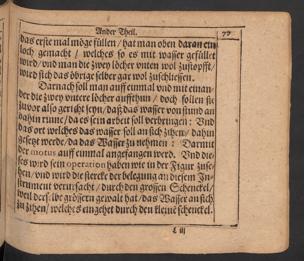 Ander Theil. 77
das erste mal möge füllen / hat man oben daran ein
loch gemacht / welches so es mit wasser gefüllet
wird / vnd man die zwey löcher vnten wol zustopfft /
wird sich das übrige selber gar wol zuschliessen.
Darnach soll man auff einmal vnd mit einan-
der die zwey vntere löcher auffthun / doch sollen sie
zuvor also gericht seyn / daß das wasser von stund an
dahin rinne / da es sein arbeit soll verbringen: Vnd
das ort welches das wasser soll an sich ziehen / dahin
gesetzt werde / da das Wasser zu nehmen: Darmit
der motus auff einmal angefangen werd. Vnd die-
ses wird sein operation haben wie in der Figur zuse-
hen / vnd wird die stercke der belegung an diesem In-
strument verursacht / durch den grossen Schenckel /
weil derselbe grössern gewalt hat / das Wasser an sich
zu ziehen / welches eingehet durch den kleine schenckel.